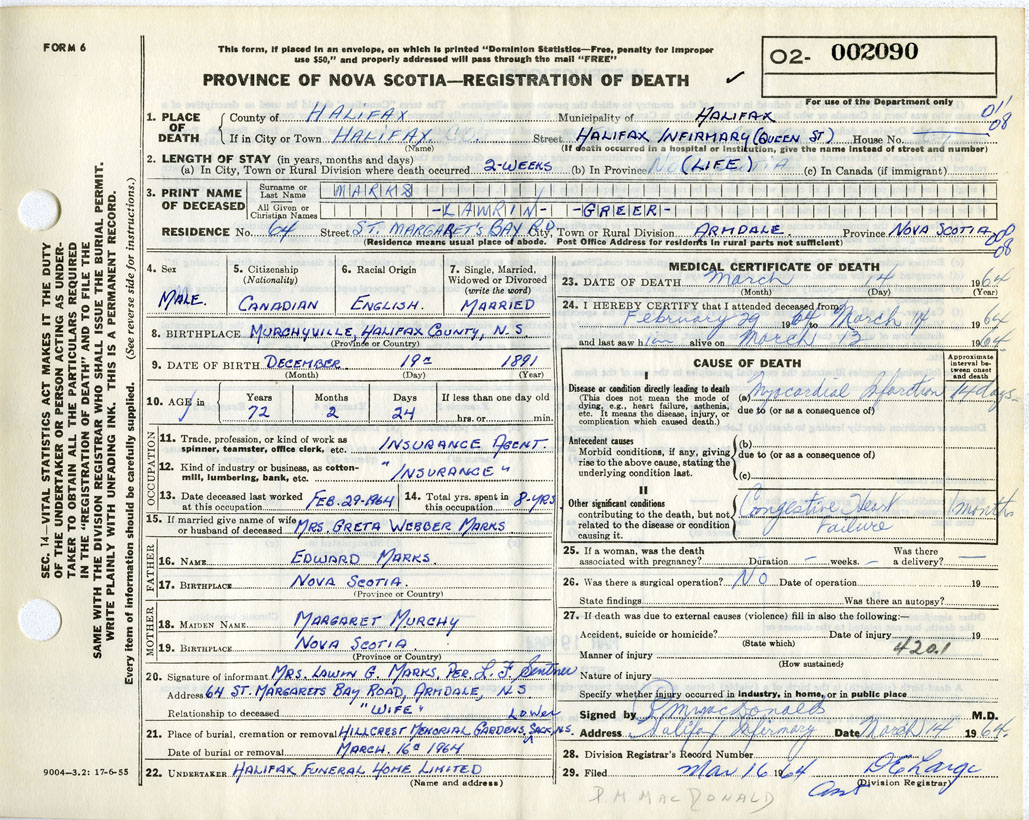 FORM 6
This form, if placed in an envelope, on which is printed "Dominion Statistics—Free, penalty for improper
use $50," and properly addressed will pass through the mail "FREE"
PROVINCE OF NOVA SCOTIA—REGISTRATION OF DEATH ✓
O2- 002090
For use of the Department only
011
08
1. PLACE OF DEATH
County of HALIFAX Municipality of HALIFAX
If in City or Town HALIFAX Street HALIFAX INFIRMARY (QUEEN ST) House No.
(Name) (If death occurred in a hospital or institution, give the name instead of street and number)
2. LENGTH OF STAY (in years, months and days)
(a) In City, Town or Rural Division where death occurred 2-WEEKS (b) In Province (LIFE) (c) In Canada (if immigrant)
3. PRINT NAME OF DECEASED
Surname or Last Name MARKS
All Given or Christian Names -LAWRIN- -GREER-
RESIDENCE No. 64 Street ST. MARGARET'S BAY RD. City, Town or Rural Division ARMDALE. Province NOVA SCOTIA
(Residence means usual place of abode. Post Office Address for residents in rural parts not sufficient)
000
08
4. Sex
MALE.
5. Citizenship
(Nationality)
CANADIAN
6. Racial Origin
ENGLISH.
7. Single, Married,
Widowed or Divorced
(write the word)
MARRIED
8. BIRTHPLACE MURCHYVILLE, HALIFAX COUNTY, N.S
(Province or Country)
9. DATE OF BIRTH DECEMBER 19th 1891
(Month) (Day) (Year)
10. AGE in Years Months Days If less than one day old
72 2 24 hrs. or min.
OCCUPATION
11. Trade, profession, or kind of work as
spinner, teamster, office clerk, etc. INSURANCE AGENT.
12. Kind of industry or business, as cotton-
mill, lumbering, bank, etc. "INSURANCE"
13. Date deceased last worked
at this occupation FEB-29-1964
14. Total yrs. spent in
this occupation 8-YRS
15. If married give name of wife
or husband of deceased MRS. GRETA WEBBER MARKS
FATHER
16. NAME EDWARD MARKS.
17. BIRTHPLACE NOVA SCOTIA.
(Province or Country)
MOTHER
18. MAIDEN NAME MARGARET MURCHY
19. BIRTHPLACE NOVA SCOTIA
(Province or Country)
20. Signature of informant MRS. LAWIN G. MARKS, PER. L. F.
Address 64 ST. MARGARETS BAY ROAD, ARMDALE, N.S
Relationship to deceased "WIFE"
LOWER
21. Place of burial, cremation or removal HILLCREST MEMORIAL GARDENS, SACK, N.S.
Date of burial or removal MARCH. 16th 1964
22. UNDERTAKER HALIFAX FUNERAL HOME LIMITED
(Name and address)
MEDICAL CERTIFICATE OF DEATH
23. DATE OF DEATH March 14 1964
(Month) (Day) (Year)
24. I HEREBY CERTIFY that I attended deceased from
February 29 1964 to March 14 1964
and last saw him alive on March 13 1964
CAUSE OF DEATH
Approximate interval between onset and death
I
Disease or condition directly leading to death
(This does not mean the mode of
dying, e.g., heart failure, asthenia,
etc. It means the disease, injury, or
complication which caused death.)
(a) Myocardial Infarction 14 days
due to (or as a consequence of)
Antecedent causes
Morbid conditions, if any, giving
rise to the above cause, stating the
underlying condition last.
(b)
due to (or as a consequence of)
(c)
II
Other significant conditions
contributing to the death, but not
related to the disease or condition
causing it.
Congestive Heart months
Failure
25. If a woman, was the death
associated with pregnancy? Duration weeks. Was there
a delivery?
26. Was there a surgical operation? NO Date of operation 19
State findings Was there an autopsy?
27. If death was due to external causes (violence) fill in also the following:—
Accident, suicide or homicide? Date of injury 19
(State which)
420.1
Manner of injury
(How sustained)
Nature of injury
Specify whether injury occurred in industry, in home, or in public place
Signed by P M MacDonald M.D.
Address Halifax Infirmary Date March 14 1964.
28. Division Registrar's Record Number
29. Filed Mar 16 1964 D E Large
(Division Registrar)
P.M MACDONALD
SEC. 14—VITAL STATISTICS ACT MAKES IT THE DUTY
OF THE UNDERTAKER OR PERSON ACTING AS UNDER-
TAKER TO OBTAIN ALL THE PARTICULARS REQUIRED
IN THE "REGISTRATION OF DEATH" AND TO FILE THE
SAME WITH THE DIVISION REGISTRAR WHO SHALL ISSUE THE BURIAL PERMIT.
WRITE PLAINLY WITH UNFADING INK. THIS IS A PERMANENT RECORD.
Every item of information should be carefully supplied. (See reverse side for instructions.)
9004—3.2: 17-6-55